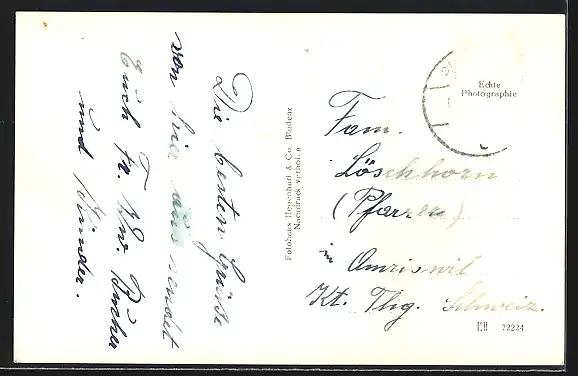 Die besten Grüße
von hier aus sendet
Euch Fr. Ww. Bücher
und Kinder.
Fotohaus Heppenhurl & Co. Bludenz
Nachdruck verboten
Echte
Photographie
Fam.
Löschhorn
(Pfarrer)
in
Amriswil
Kt. Thg. Schweiz.
72224